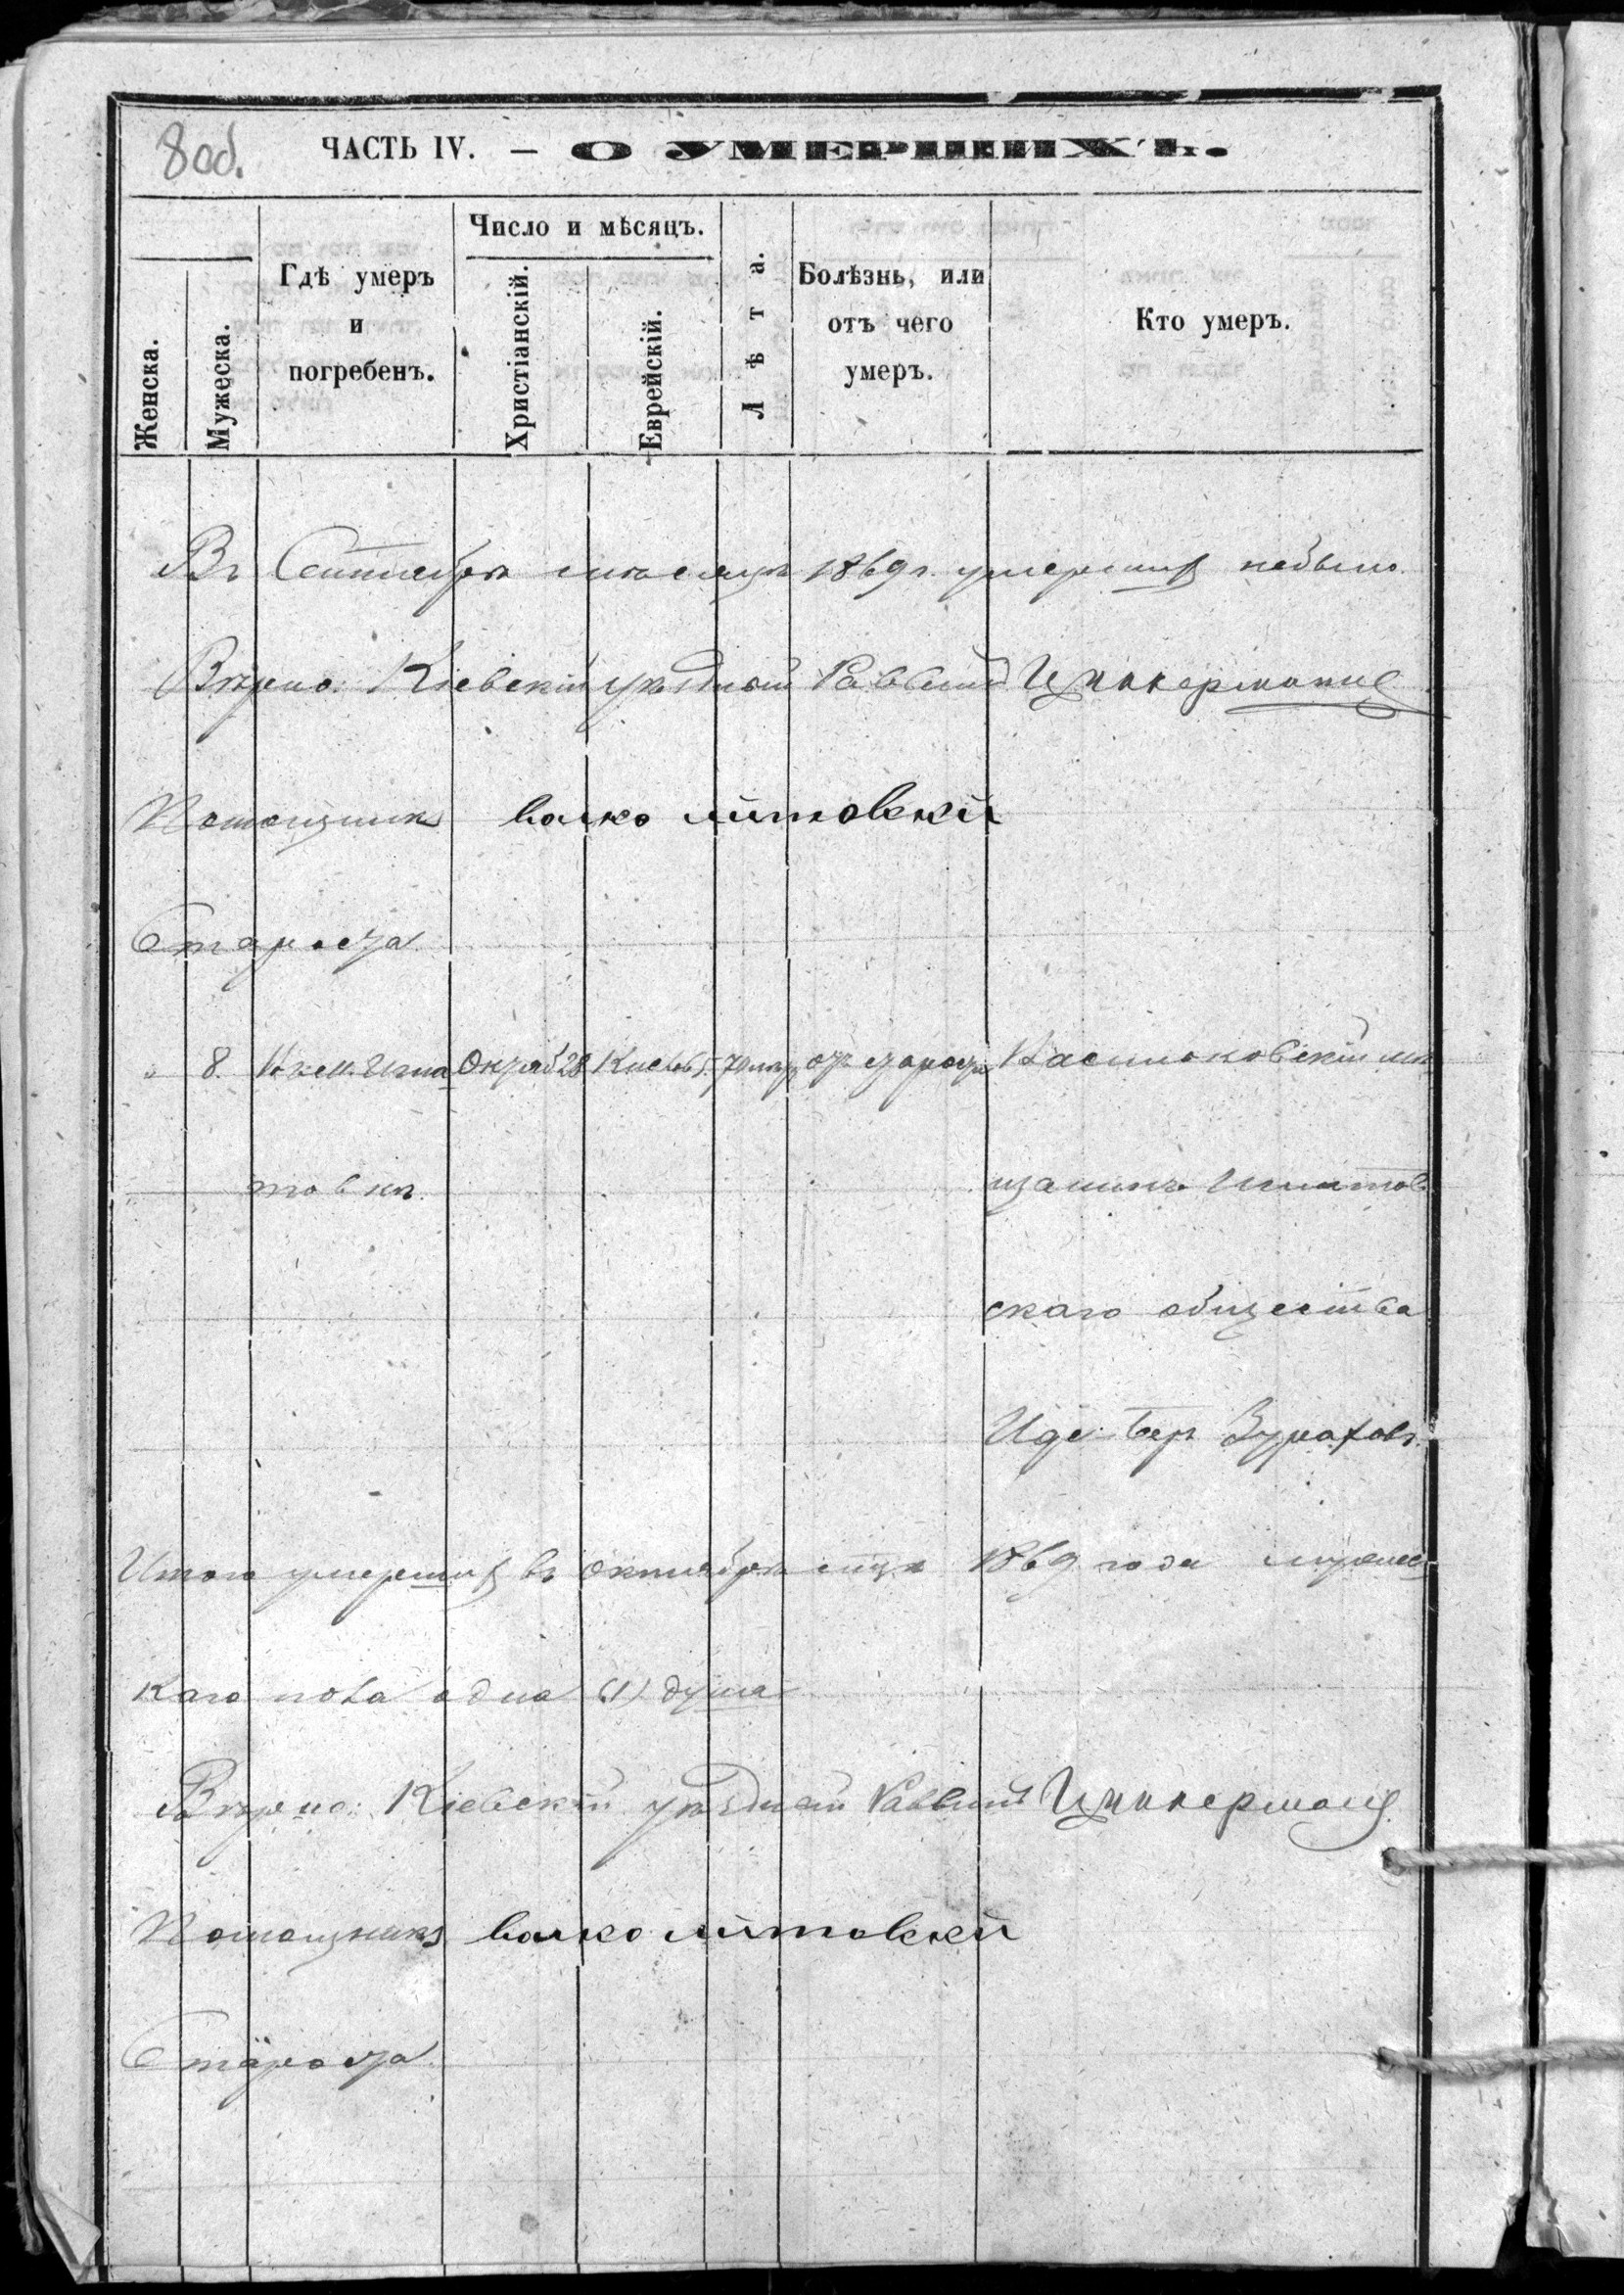 8 об.
ЧАСТЬ IV. — О УМЕРШИХЪ.
Женска.
Мужеска.
Гдѣ умеръ
и
погребенъ.
Число и мѣсяцъ.
Христіанскій.
Еврейскій.
Лѣта.
Болѣзнь, или
отъ чего
умеръ.
Кто умеръ.
Въ Сентябрѣ мѣсяцѣ 1869 г. умершихъ небыло.
Вѣрно: Кіевскій уѣздный Раввинъ Цуккерманъ
Помощникъ Волко Литовскій
Староста
" 8. Въ м. Игна Октяб 28 Кислев 5. 70 лѣтъ отъ старости Васильковскій мѣ
товкѣ. щанинъ Игнатов
скаго общества
Иде-Беръ
Итого умершихъ въ октябрѣ м-цѣ 1869 года мужес
каго пола одна (1) душа
Вѣрно: Кіевскій уѣздный Раввинъ Цуккерманъ
Помощникъ Волко Литовскій
Староста